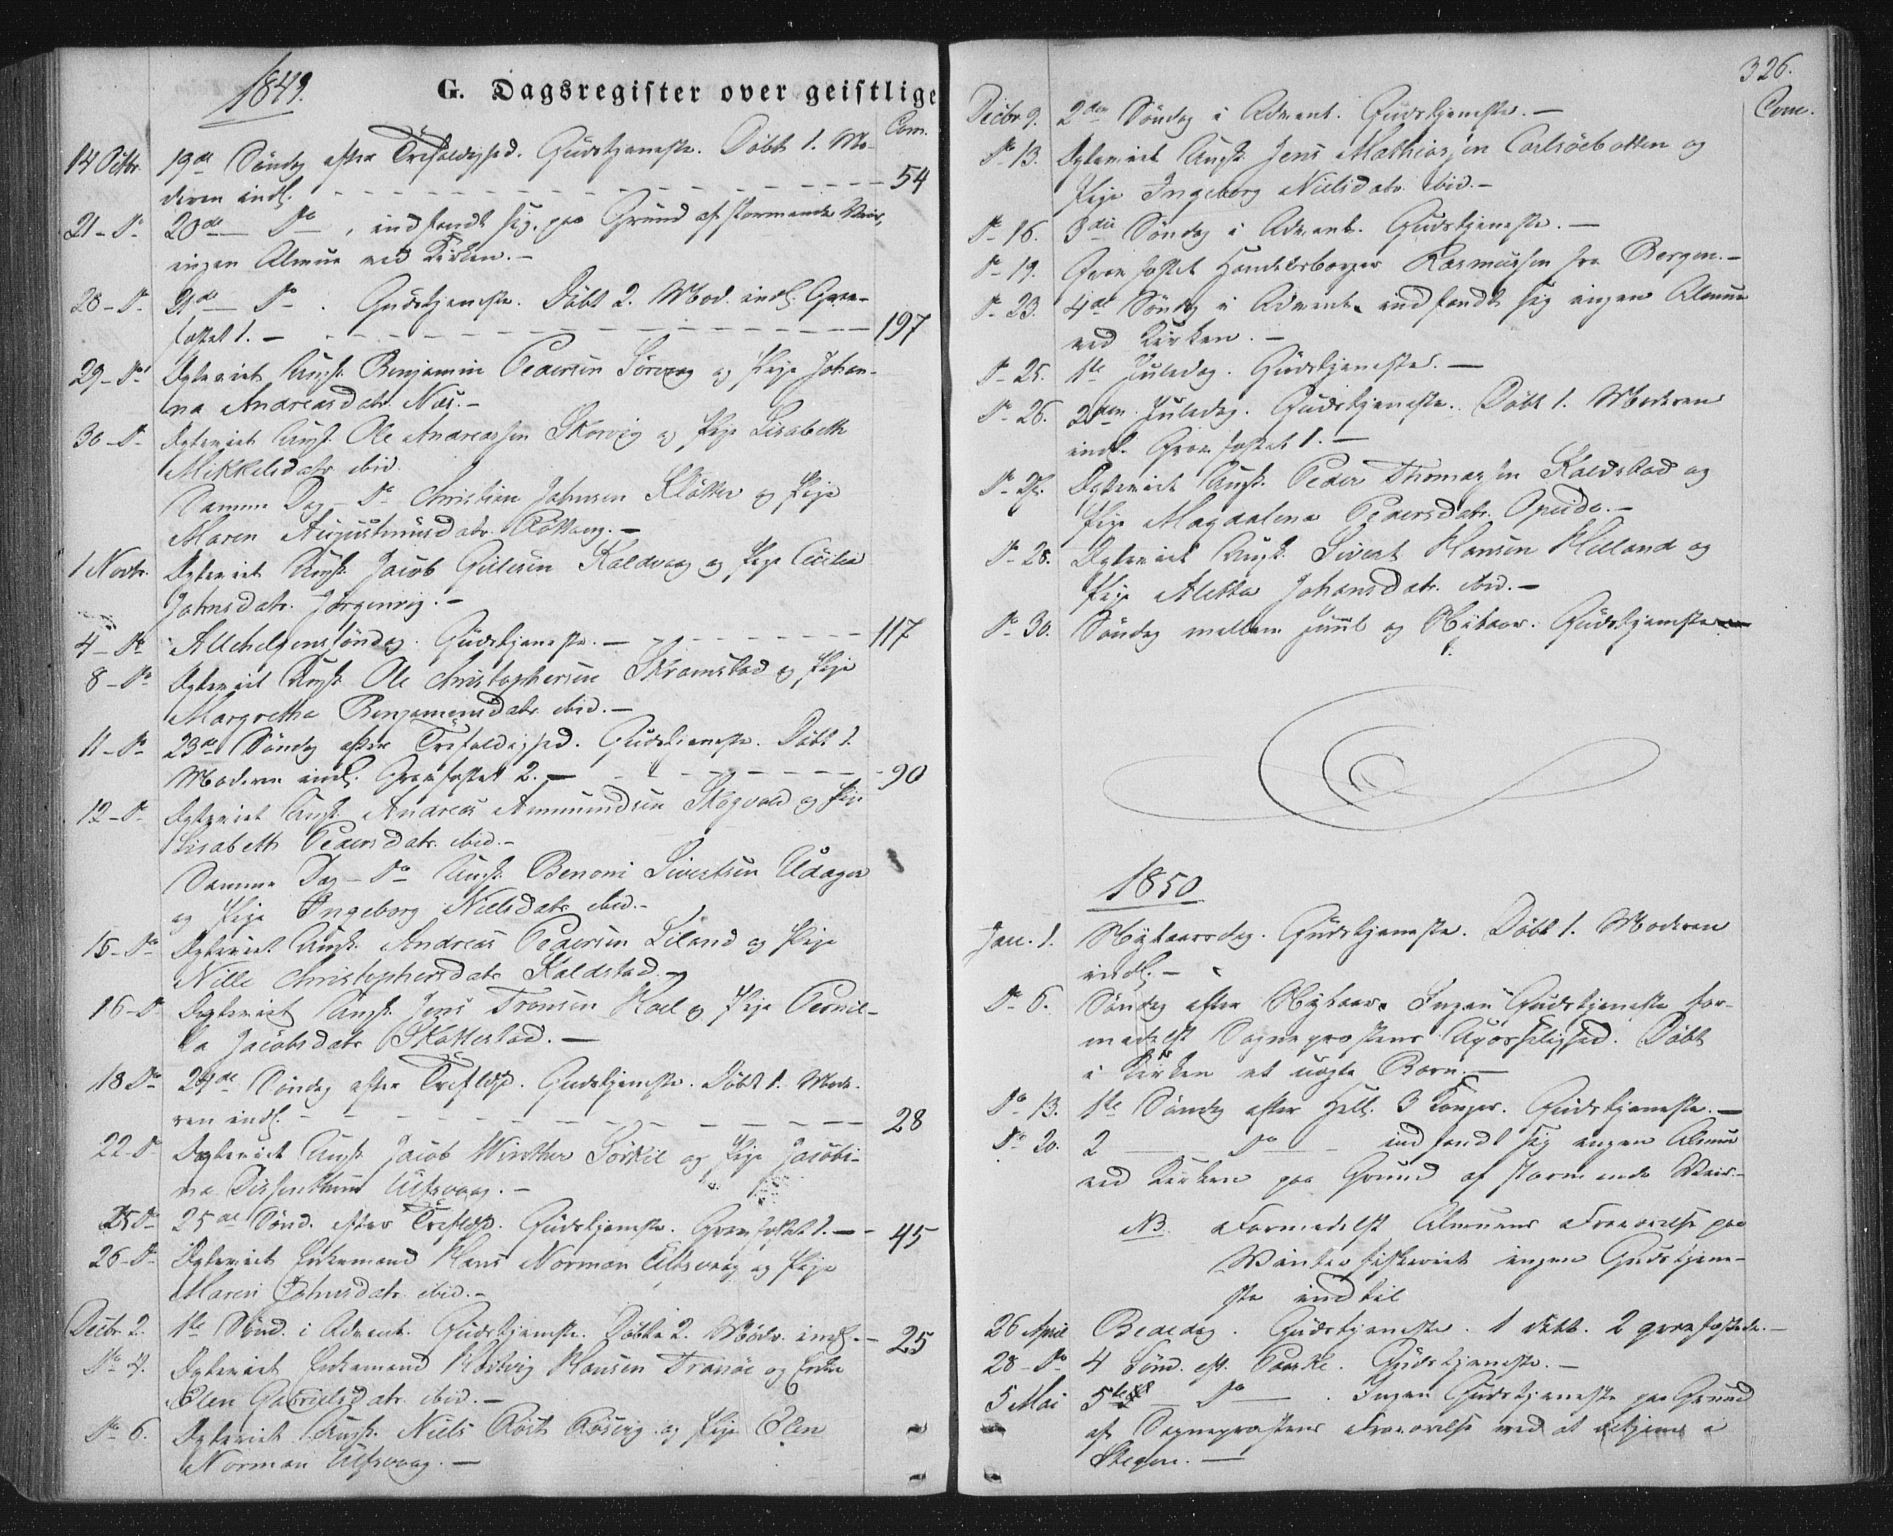 1849.
G. Dagsregister over geistlige
Com.
14 Octbr. 19de Søndag efter Trefoldighed. Gudstjeneste. Døbt 1. Mo-
deren indl. 54
21 - Do 20de - Do -, indfandt sig, paa Grund af stormende Veir,
ingen Almue ved Kirken. -
28 - Do 21de - Do. Gudstjeneste. Døbt 2. Mød. indl. Grav-
fæstet 1. - 197
29 - Do Egteviet Ungk. Benjamin Pedersen Sørvaag og Pige Johan-
na Andreasdatr. Næs. -
30 - Do Egteviet Ungk. Ole Andreassen Skorvig og Pige Lisabeth
Mikkelsdatr ibid.
Samme Dag - Do Christian Johnsen Kløtter og Pige
Maren Augustinusdatr. -
1 Novbr. Egteviet Ungk. Jacob Kaldvaag og Pige Cecilia
Johnsdatr. Jørgenvig. -
4 - Do Allehelgenssøndag. Gudstjeneste. - 117
8 - Do Egteviet Ungk. Ole Christophersen Skramstad og Pige
Margretha Benjaminsdatr. ibid. -
11 - Do 23de Søndag efter Trefoldighed. Gudstjeneste. Døbt 1.
Moderen indl. Gravfæstet 2. - 90
12 - Do Egteviet Ungk. Andreas Ammundsen Skogvold og Pige
Lisabeth Pedersdatr. ibid. -
Samme Dag - Do Ungk. Benoni Sivertsen
og Pige Ingeborg Nielsdatr. ibid. -
15 - Do Egteviet Ungk. Andreas Pedersen Leland og Pige
Nille Christophersdatr. Kaldstad. -
16 - Do Egteviet Ungk. Jens Tronsen Hoel og Pige Pernil-
la Jacobsdatr. Skottestad. -
18 Do 24de Søndag efter Trefldgh. Gudstjeneste. Døbt 1. Mode-
ren indl. 28
22 - Do Egteviet Ungk. Jacob Winther Sørkil og Pige Jacobi-
na Ulfsvaag. -
25 Do 25de Sønd. efter Trefldgh. Gudstjeneste. Gravfæstet 1. - 45
26 - Do Egteviet Enkemand Hans Norman Ulfsvaag og Pige
Maren Johnsdatr. ibid. -
Decbr. 2. 1ste Sønd. i Advent. Gudstjeneste. Døbte 2. Mødr. indl. - 25
Do 4. Egteviet Enkemand Hartvig Hansen Tranøe og Enke
Elen Gabrielsdatr. ibid. -
Do 6. Egteviet Ungk. Niels Røst Røsvig og Pige Elen
Norman Ulfsvaag. -
326.
Com.
Decbr. 9. 2den Søndag i Advent. Gudstjeneste. -
Do 13. Egteviet Ungk. Jens Mathiassen Carlsøebotten og
Pige Ingeborg Nielsdatr. ibid. -
Do 16. 3die Søndag i Advent. Gudstjeneste. -
Do 19. Gravfæstet Handelsborger Rasmussen fra Bergen. -
Do 23. 4de Søndag i Advent, indfandt sig ingen Almue
ved Kirken. -
Do 25. 1ste Juledag. Gudstjeneste. -
Do 26. 2den Juledag. Gudstjeneste. Døbt 1. Moderen
indl. Gravfæstet 1. -
Do 27. Egteviet Ungk. Peder Thomassen Kaldstad og
Pige Magdalena Pedersdatr. Opeide. -
Do 28. Egteviet Ungk. Sivert Hansen Helland og
Pige Aletta Johansdatr. ibid. -
Do 30. Søndag mellem Juul og Nytaar. Gudstjeneste.
1850
Jan. 1. Nytaarsdag. Gudstjeneste. Døbt 1. Moderen
indl. -
Do 6. Søndag efter Nytaar. Ingen Gudstjeneste for-
medelst Sognepræstens Upasselighed. Døbt
i Kirken et uægte Barn. -
Do 13. 1ste Søndag efter Hell. 3 Konger. Gudstjeneste. -
Do 20. 2 - Do - indfandt sig ingen Almue
ved Kirken paa Grund af stormende Veir. -
NB. Formedelst Almuens Fraværelse paa
Vinterfiskeriet ingen Gudstjene-
ste indtil
26 April Bededag. Gudstjeneste. 1 døbt. 2 gravfæstede. -
28 - Do 4 Sønd. eft. Paaske. Gudstjeneste. -
5 Mai 5te - Do -. Ingen Gudstjeneste paa Grund
af Sognepræstens Fraværelse ved at betjene
Stegen. -